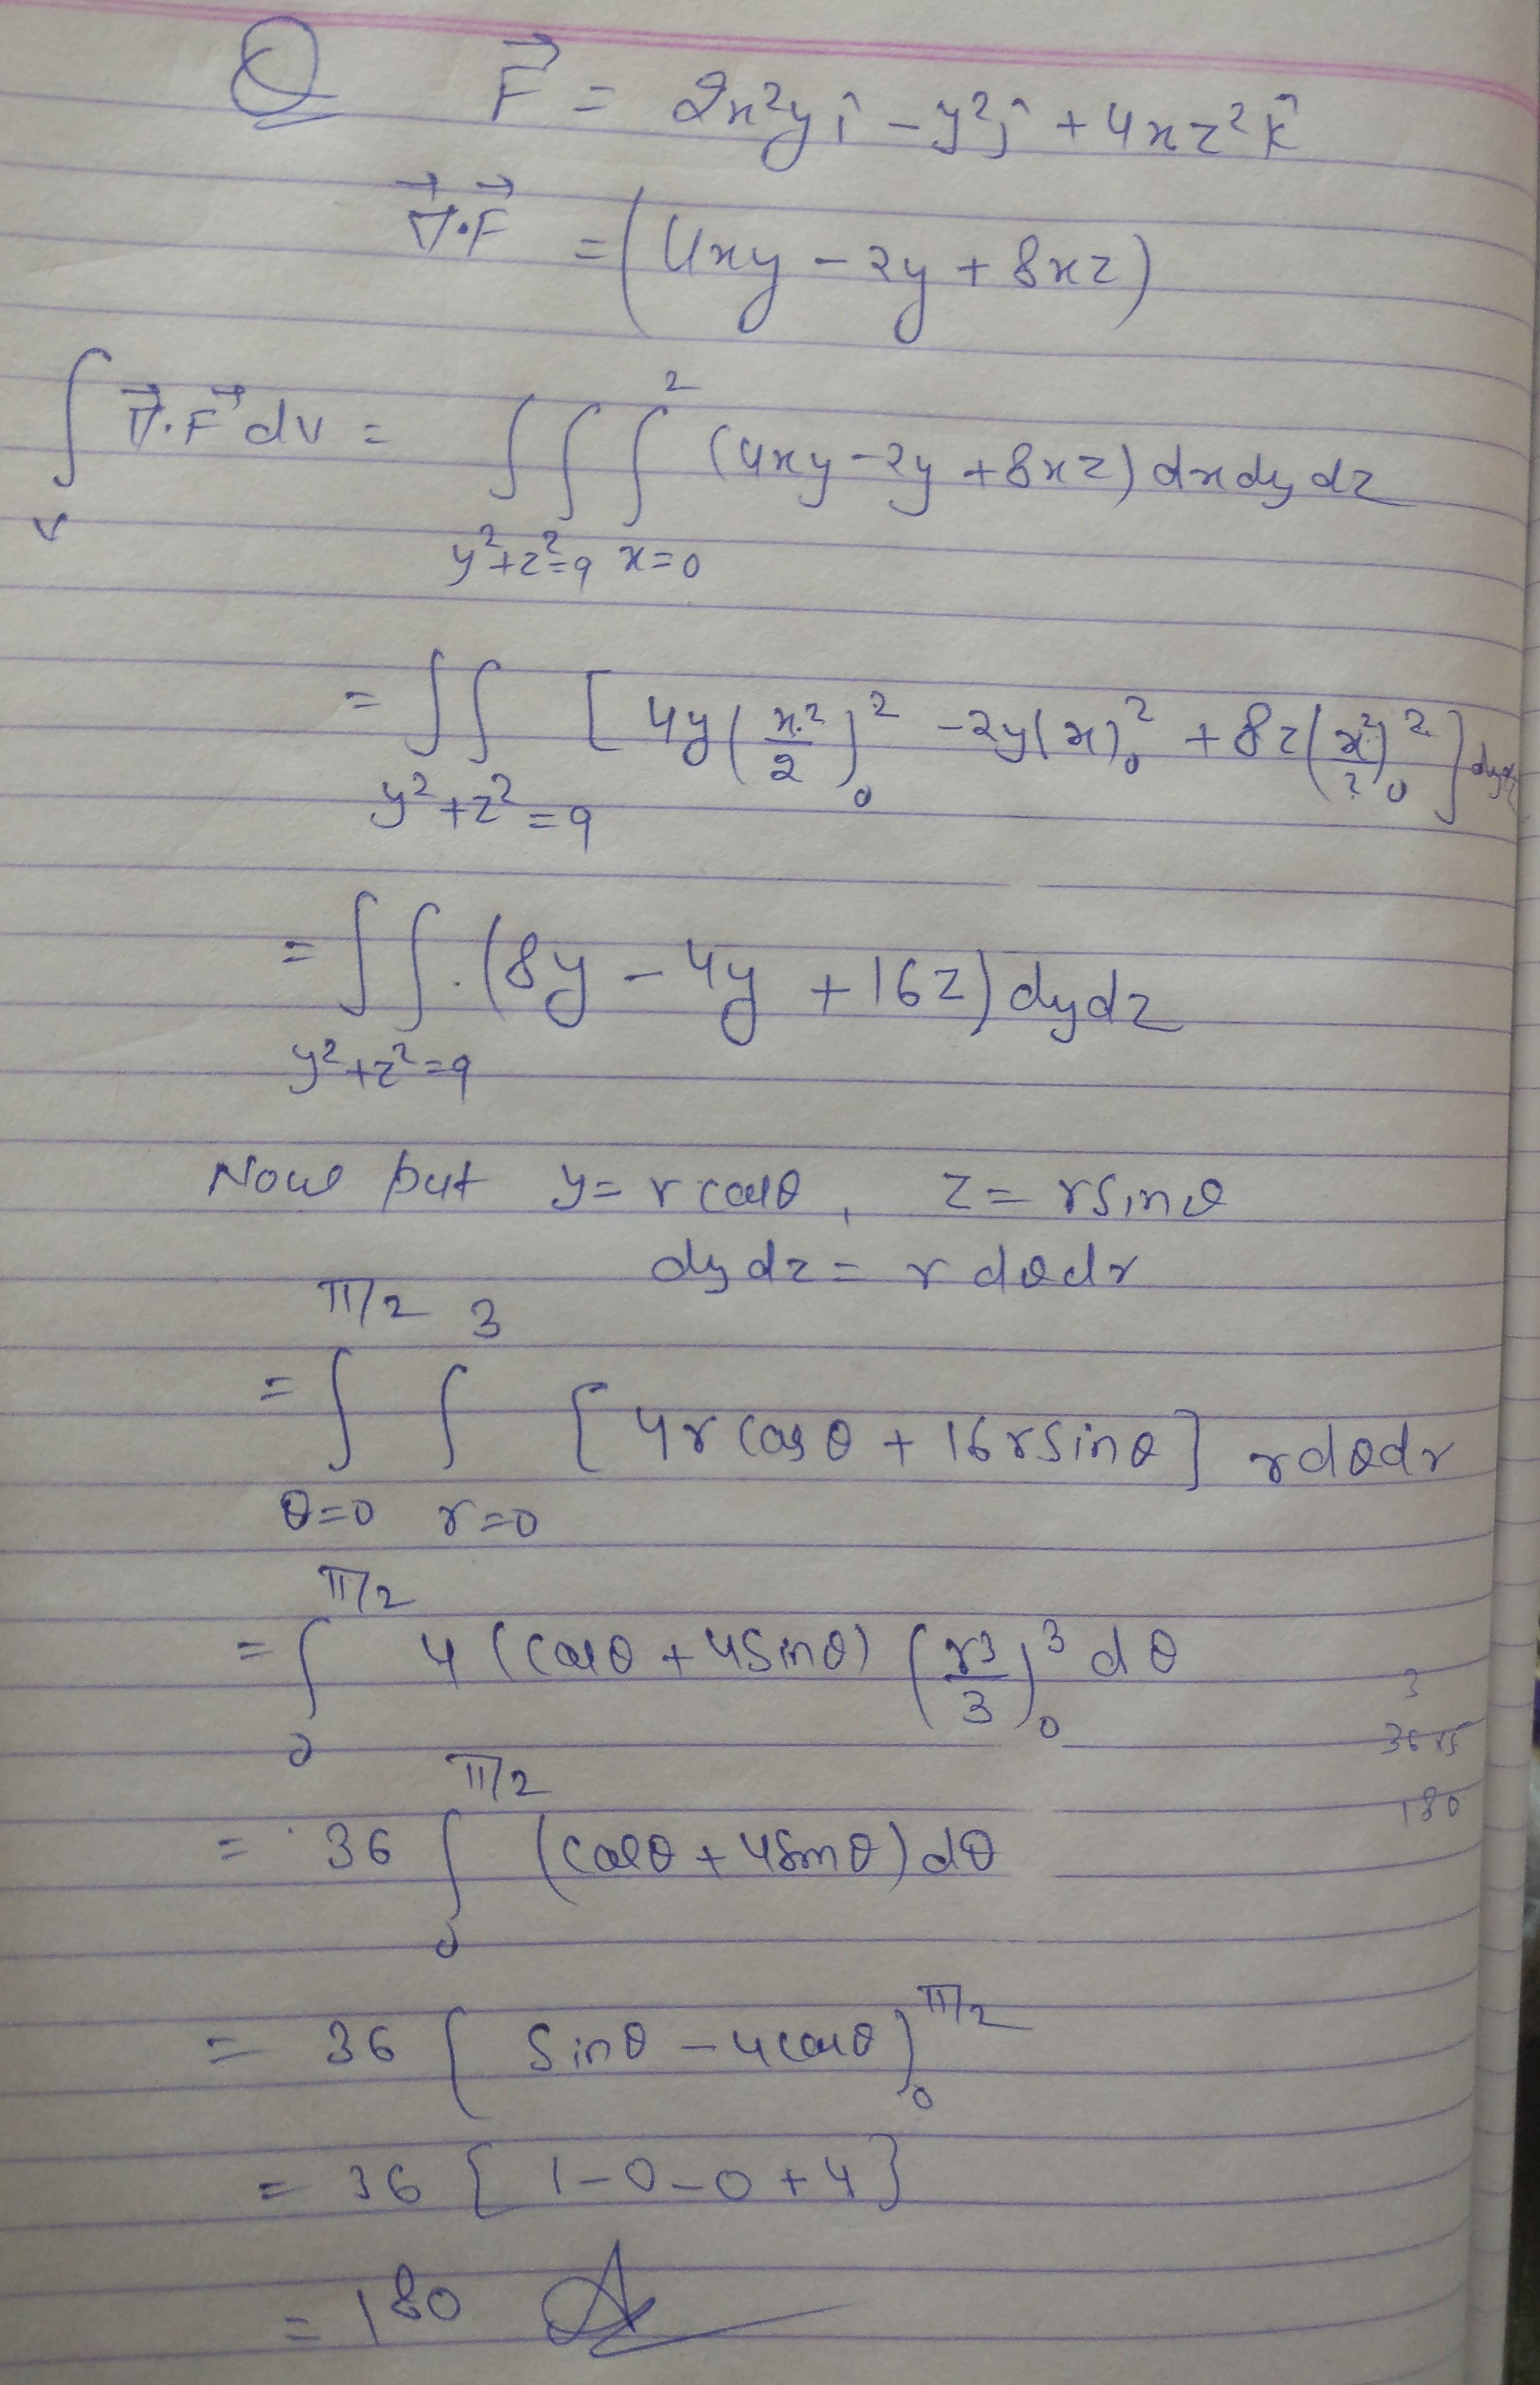 Q F⃗ = 2x²y î − y² ĵ + 4xz² k̂
∇⃗·F⃗ = (4xy − 2y + 8xz)
∫_V ∇⃗·F⃗ dv = ∫∫_{y²+z²=9} ∫_{x=0}^{2} (4xy − 2y + 8xz) dx dy dz
= ∫∫_{y²+z²=9} [4y(x²/2)₀² − 2y(x)₀² + 8z(x²/2)₀²] dydz
= ∫∫_{y²+z²=9} (8y − 4y + 16z) dy dz
Now put y = r cosθ, z = r sinθ
dy dz = r dθ dr
= ∫_{θ=0}^{π/2} ∫_{r=0}^{3} [4r cosθ + 16r sinθ] r dθ dr
= ∫_0^{π/2} 4(cosθ + 4 sinθ) (r³/3)₀³ dθ
3
36×5
180
= 36 ∫_0^{π/2} (cosθ + 4 sinθ) dθ
= 36 (sinθ − 4 cosθ)₀^{π/2}
= 36 [1 − 0 − 0 + 4]
= 180